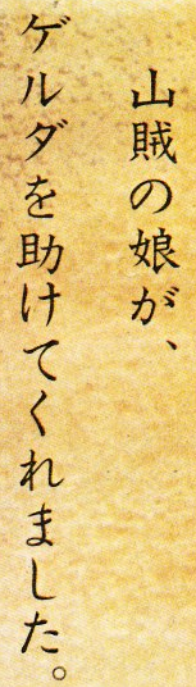 山賊の娘が、
ゲルダを助けてくれました。